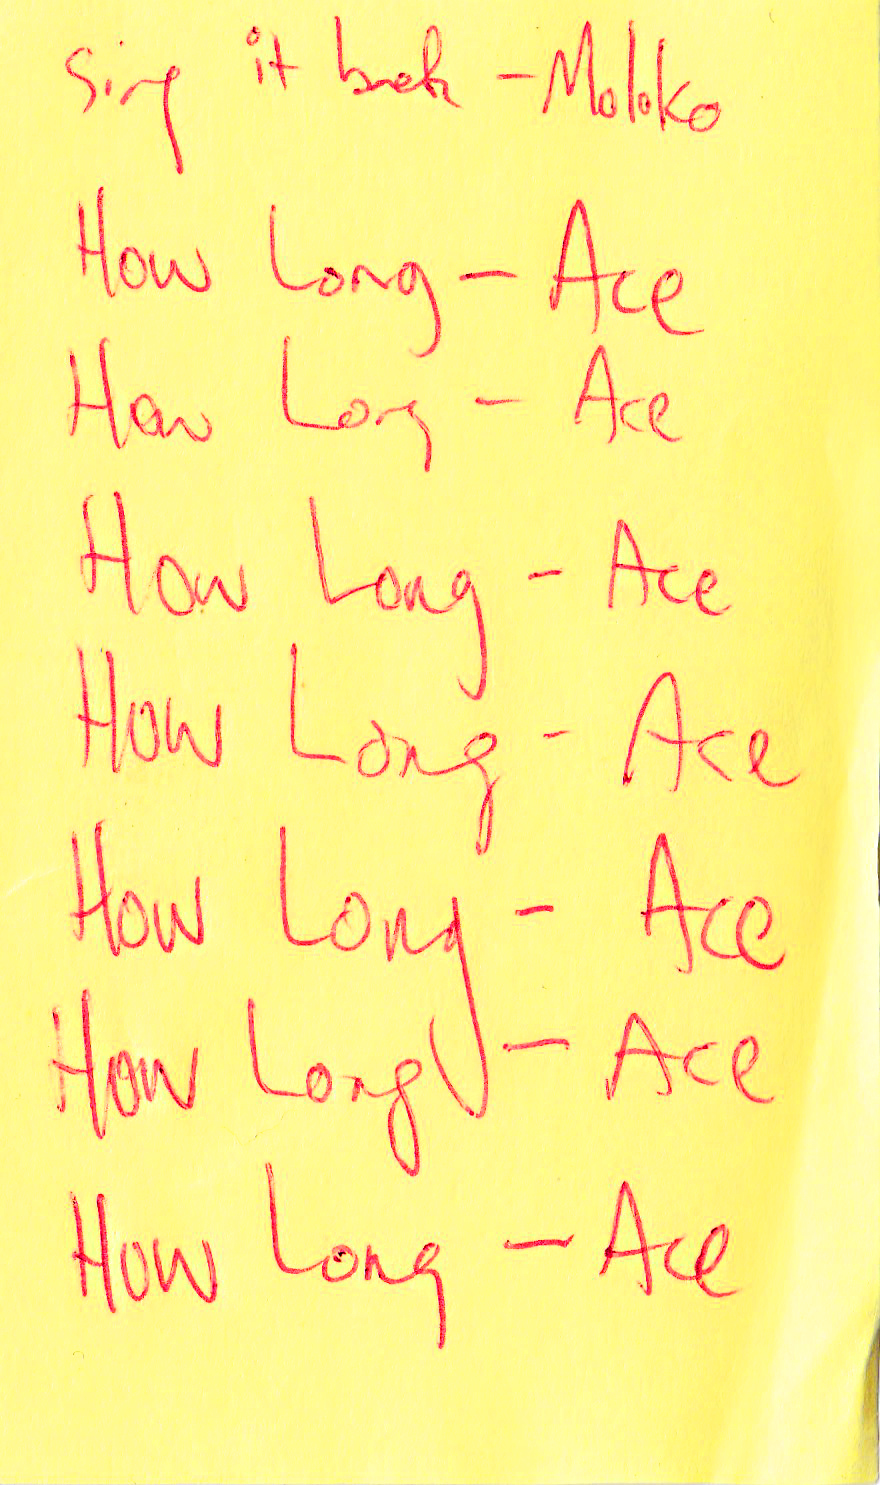 Sing it back - Moloko
How Long - Ace
How Long - Ace
How Long - Ace
How Long - Ace
How Long - Ace
How Long - Ace
How Long - Ace